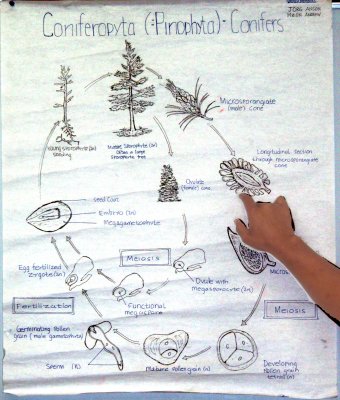 Coniferopyta (=Pinophyta)- Conifers
Microsporangiate
(male) cone
Young sporophyte (2n)
seedling
Mature sporophyte (2n)
often a large
sporophyte tree
Longitudinal section
through microsporangiate
cone
Ovulate
(female) cone
Seed coat
Embryo (2n)
Megagametophyte
Meiosis
Egg fertilized
zygote (2n)
Ovule with
megasporocyte (2n)
Functional
megaspore
Fertilization
Meiosis
Germinating Pollen
grain (male gametophyte)
Sperm (n)
Mature Pollen grain (n)
Developing
Pollen grain
tetrad (n)